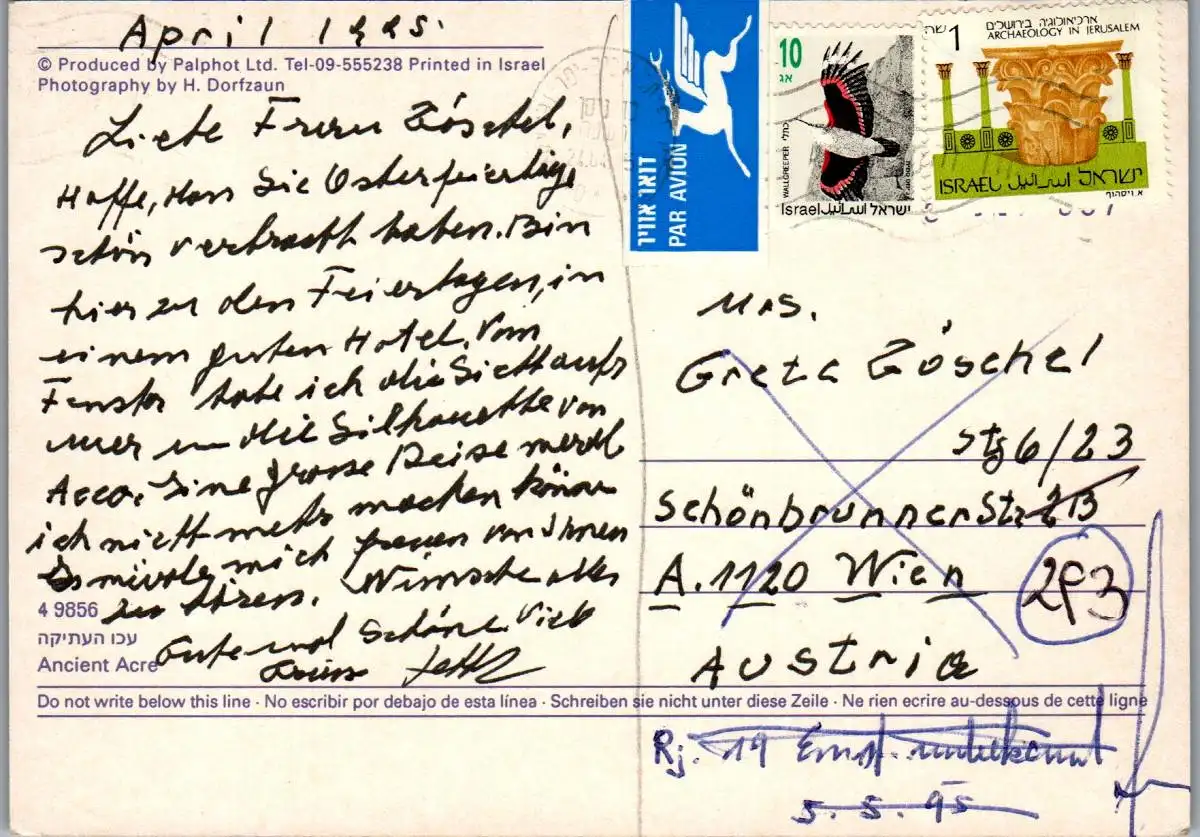 April 1995.
© Produced by Palphot Ltd. Tel-09-555238 Printed in Israel
Photography by H. Dorfzaun
Liebe Frau Zöschel,
Hoffe, dass Sie Osterfeiertage
schön verbracht haben. Bin
hier zu den Feiertagen, in
einem guten Hotel. Vom
Fenster habe ich die Sicht aufs
Meer u die Silhouette von
Acco. Eine grosse Reise werde
ich nicht mehr machen können
Es würde mich freuen von Ihnen
zu hören. Wünsche alles
Gute und Schöne Viele
Grüsse
4 9856
עכו העתיקה
Ancient Acre
דואר אוויר
PAR AVION
10
אג
WALLCREEPER
כותלי
Israel اسرائيل ישראל
1 שח
ארכיאולוגיה בירושלים
ARCHAEOLOGY IN JERUSALEM
ISRAEL اسرائيل ישראל
א. ויסהוף
Mrs.
Greta Zöschel
Stg 6/23
Schönbrunner Str.
A. 1120 Wien
293
Austria
Do not write below this line · No escribir por debajo de esta línea · Schreiben sie nicht unter diese Zeile · Ne rien ecrire au-dessous de cette ligne
Rj. 19 Empf. unbekannt
5.5.95